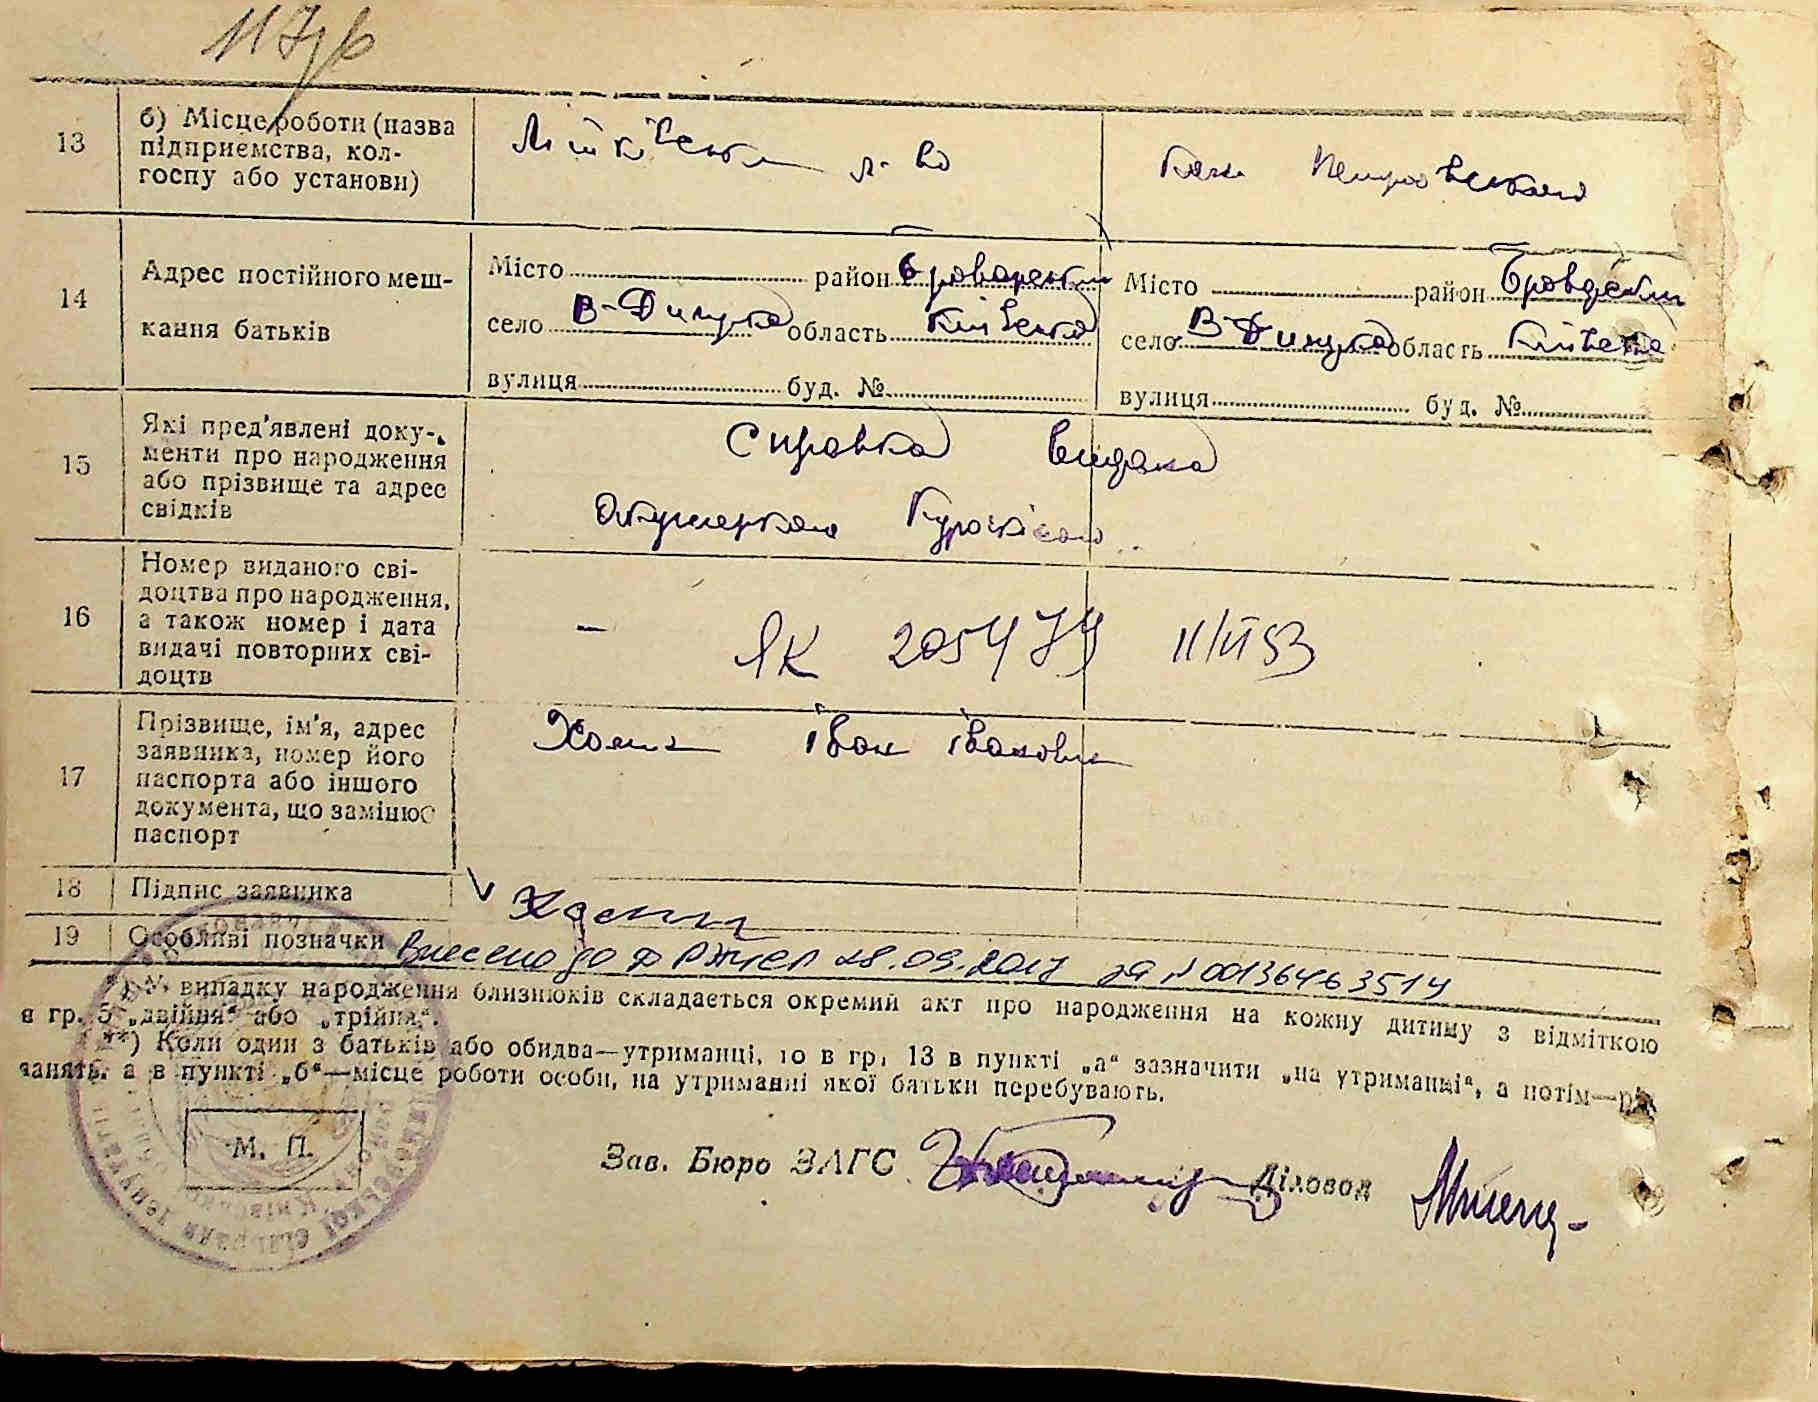 13
б) Місце роботи (назва
підприємства, кол-
госпу або установи)
Літківське л-во
Петровського
14
Адрес постійного меш-
кання батьків
Місто район Броварський
село В-Димерка область Київська
вулиця буд. №
Місто район Броварський
село В-Димерка область Київська
вулиця буд. №
15
Які пред'явлені доку-
менти про народження
або прізвище та адрес
свідків
Справка видана
Акушеркою
16
Номер виданого сві-
доцтва про народження,
а також номер і дата
видачі повторних сві-
доцтв
– ЯК 205479 11/VI 53
17
Прізвище, ім'я, адрес
заявника, номер його
паспорта або іншого
документа, що замінює
паспорт
Хоми Іван Іванович
18
Підпис заявника
19
Особливі позначки Внесено до ДРАЦСГ 28.09.2017 за № 00136463514
*) У випадку народження близнюків складається окремий акт про народження на кожну дитину з відміткою
в гр. 5 „двійня“ або „трійня“.
**) Коли один з батьків або обидва—утриманці, то в гр. 13 в пункті „а“ зазначити „на утриманці“, а потім—рід
занять, а в пункті „б“—місце роботи особи, на утриманні якої батьки перебувають.
М. П.
Зав. Бюро ЗАГС
Діловод